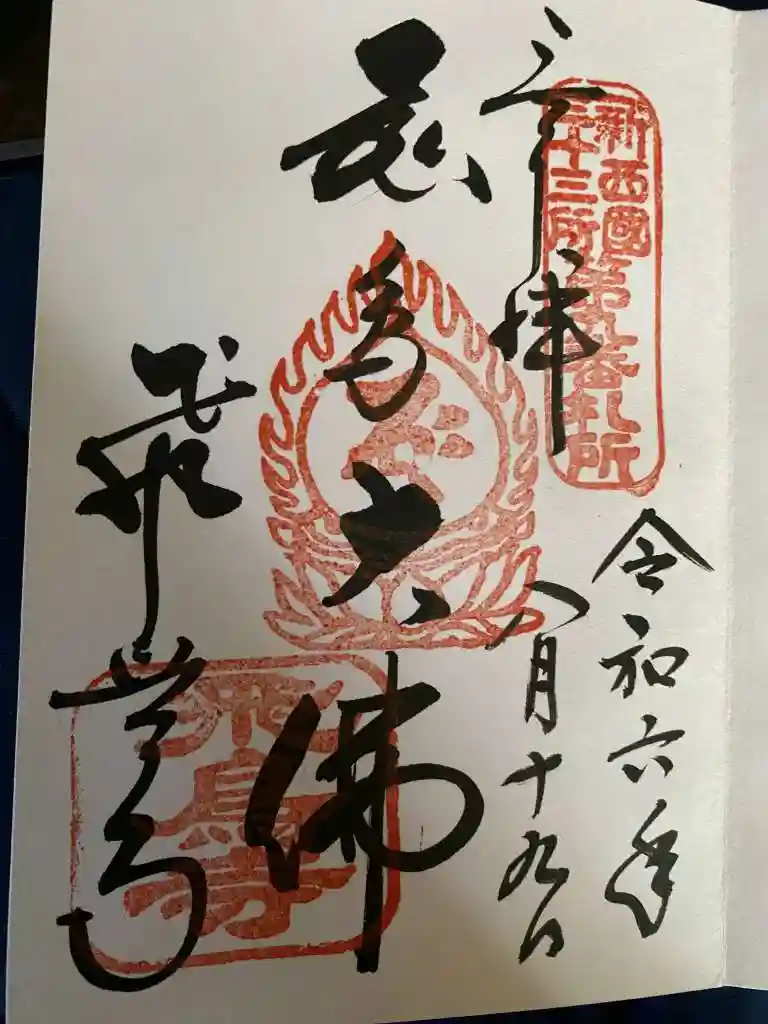 新西國
三十三所第九番札所
奉拝
令和六年
八月十九日
飛鳥大佛
飛鳥寺
飛鳥寺